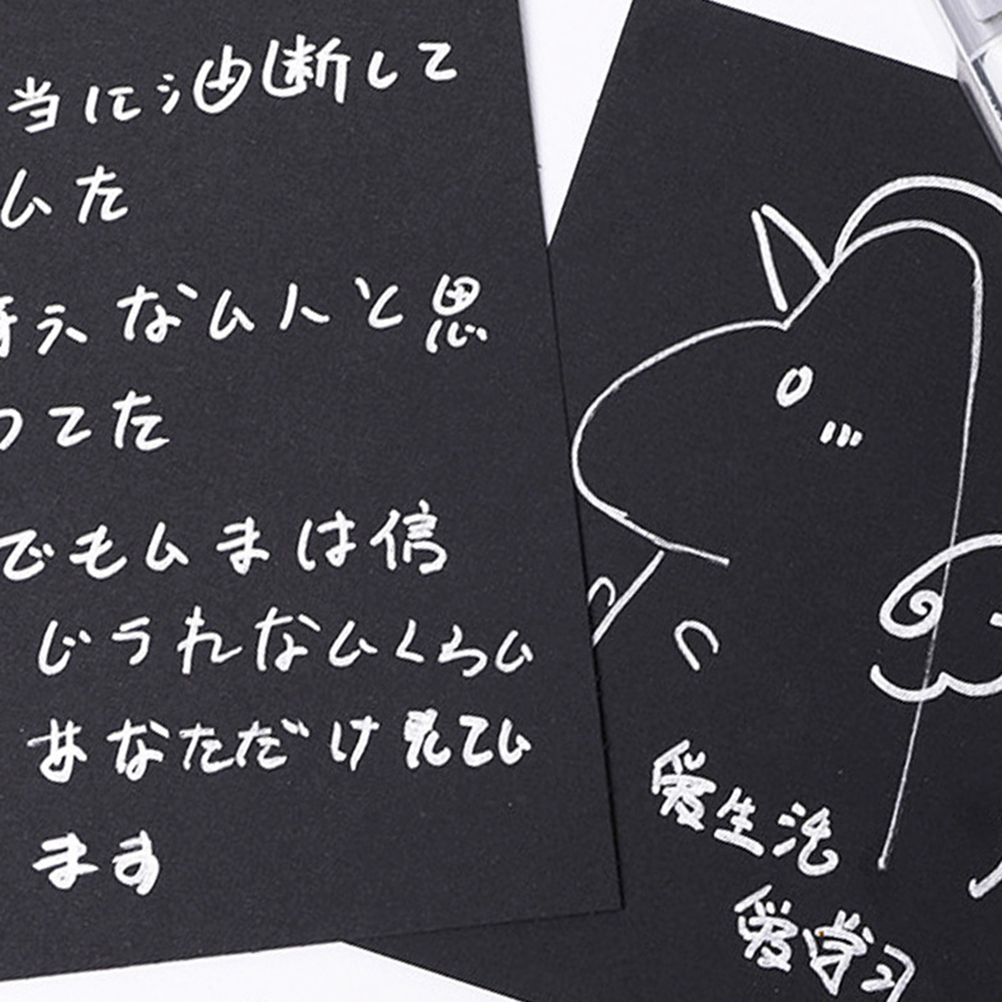 当に油断して
いた
考えないんと思
ってた
でもいまは信
じられないくらい
あなただけ見てい
ます
爱生活
爱学习